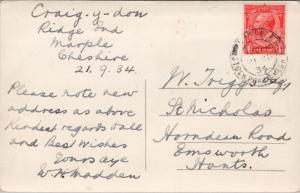 Craig-y-don
Ridge End
Marple
Cheshire
21.9.34.
Please note new
address as above
Kindest regards to all
and Best Wishes
Yours aye
W. H. Madden
W. Triggs Esq
St Nicholas
Horndean Road
Emsworth
Hants.